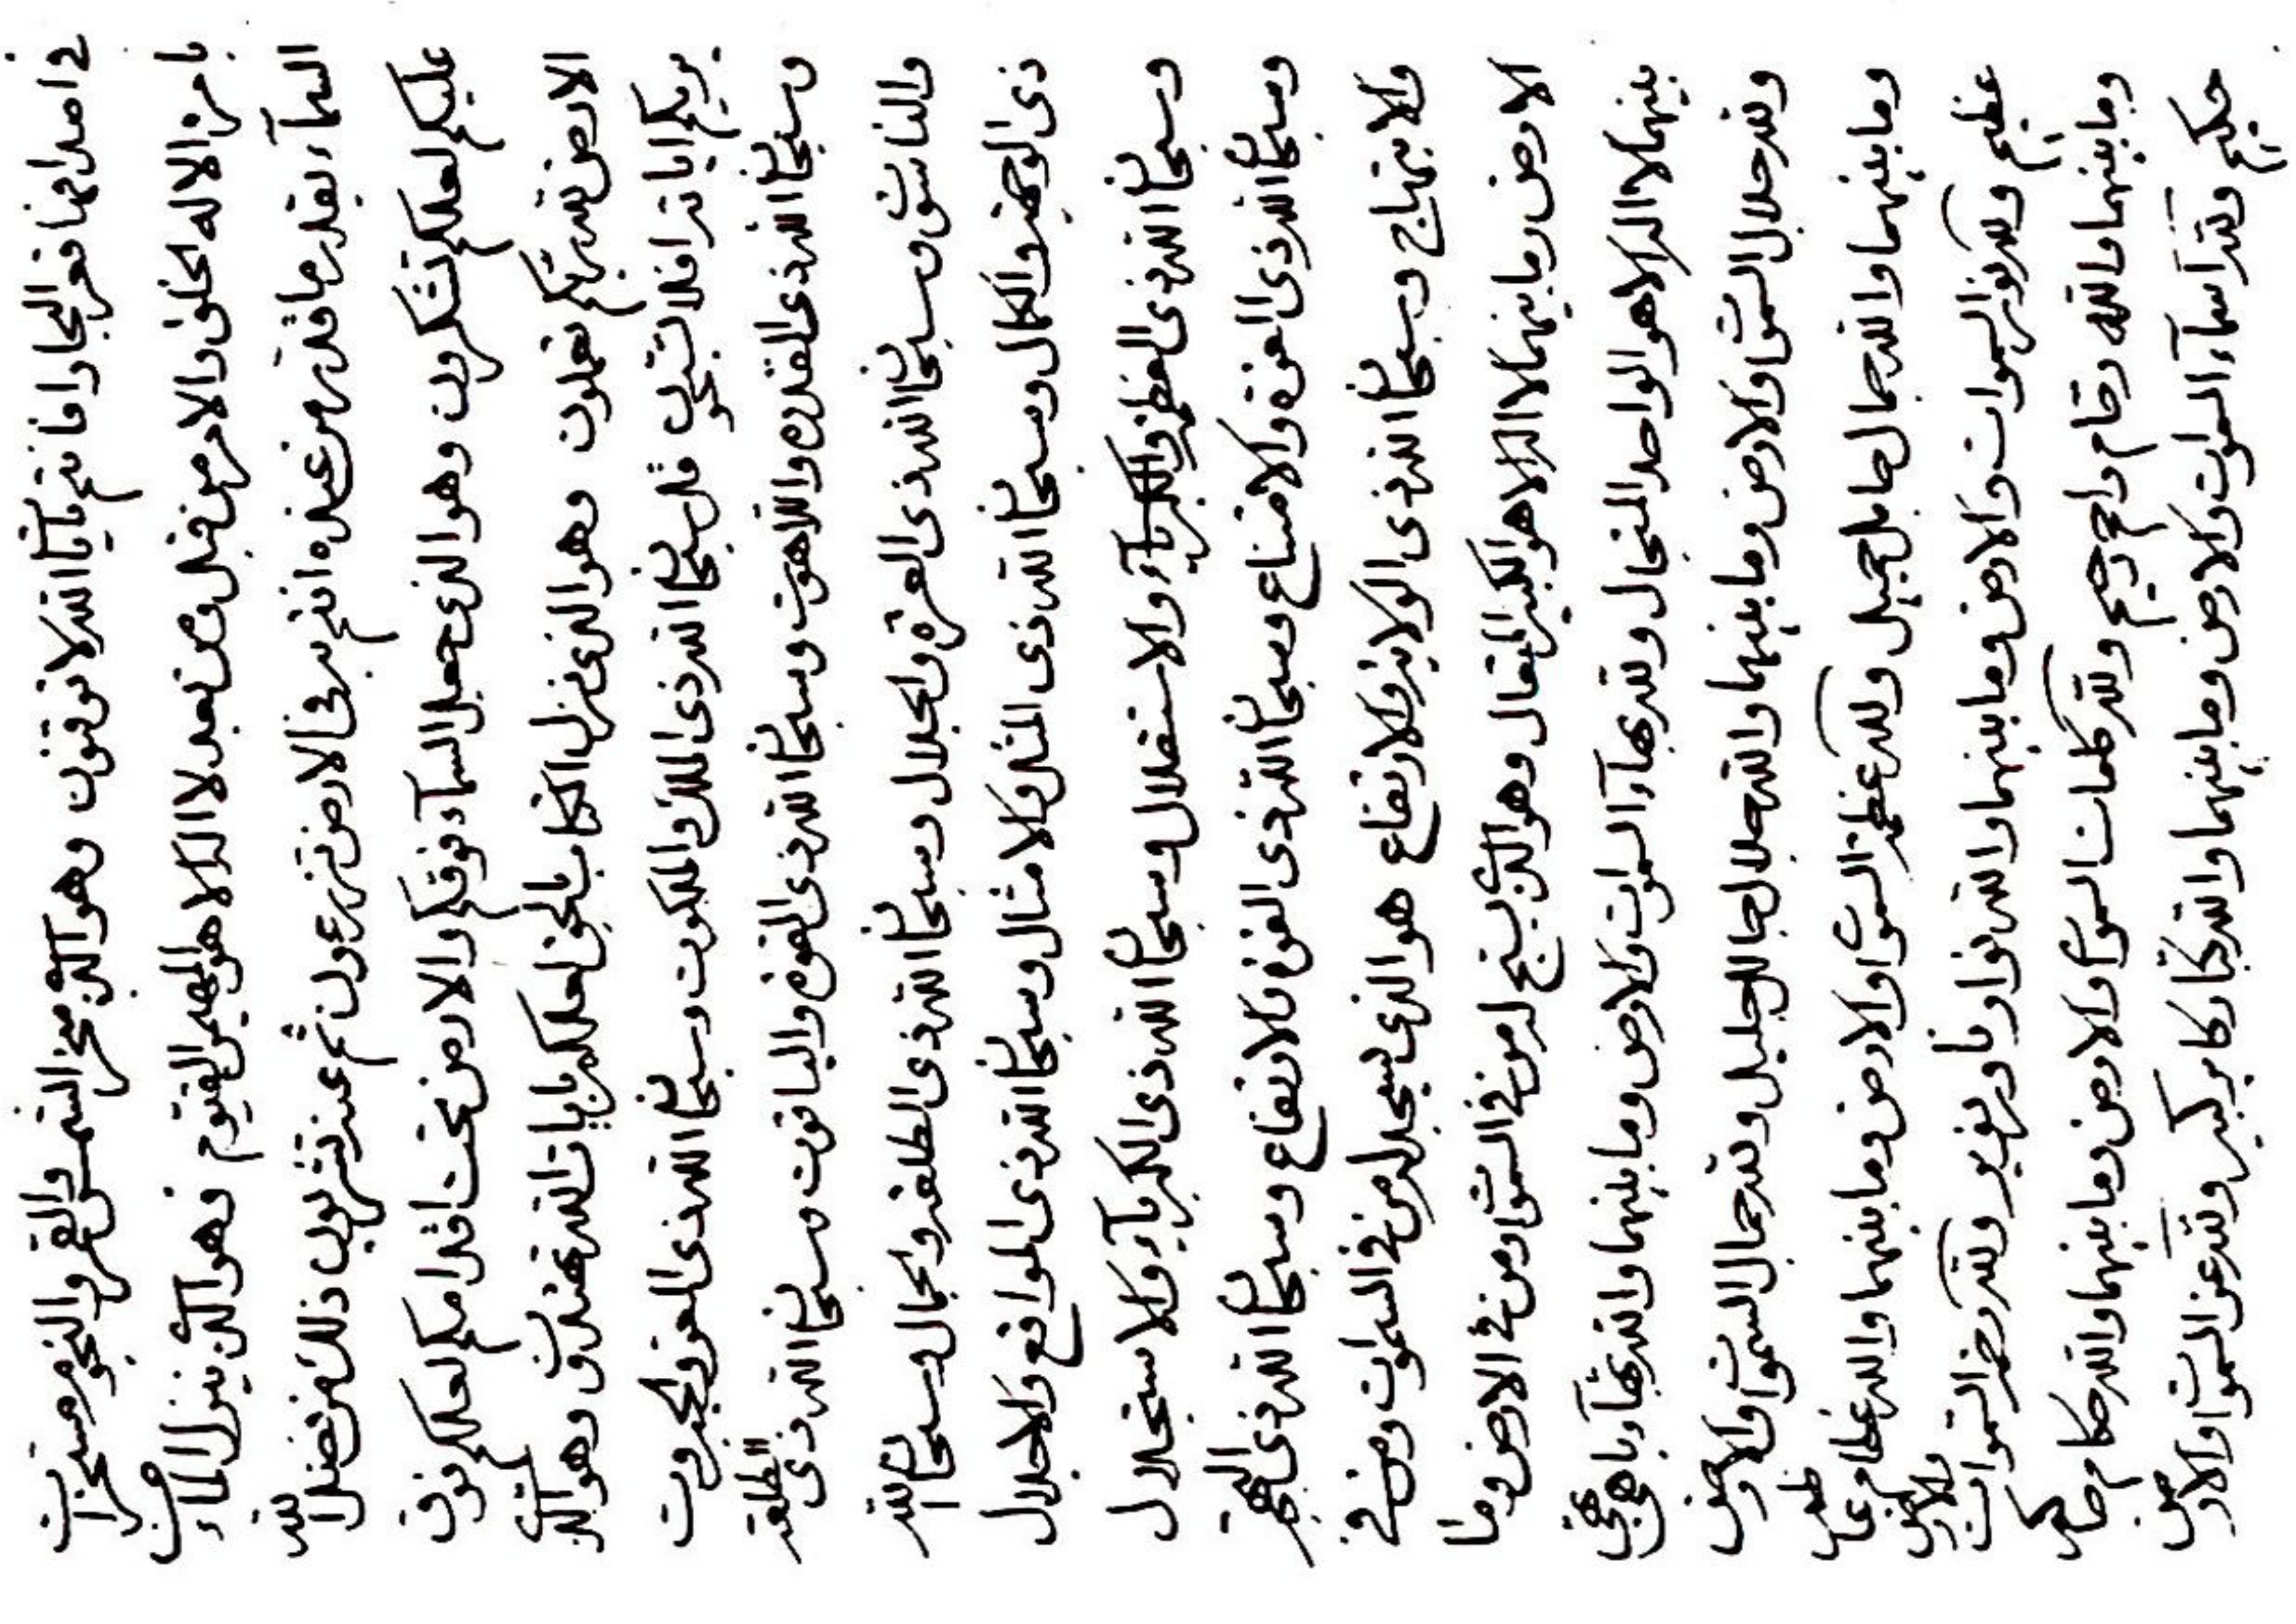 في امدامها فعر البحار افانتم بآيات الله لا توقنون وهو الذي سخر الشمس والقمر والنجوم مسخرات
بامره الا له الخلق والامر من قبل ومن بعد لا اله الا هو المهيمن القيوم وهو الذي ينزل الماء من
السمآء بقدر ما قدر من عنده انتم به في الارض تزرعون ثم عنه تشربون ذلك من فضل الله
عليكم لعلكم تشكرون وهو الذي جعل السمآء فوقكم والارض تحت اقدامكم لعلكم فوق
الارض لله ربكم تعملون وهو الذي نزل الكتاب بالحق لعلكم بايات الله تهتدون وهو الذي
يريكم اياته افلا قل سبحان الله ذي الملك والملكوت وسبحان الله ذي العز والجبروت
وسبحان الله ذي القدرة واللاهوت وسبحان الله ذي القوة والياقوت وسبحان الله ذي السلطنة
والناسوت وسبحان الله ذي العزة والجلال وسبحان الله ذي الطلعة والجمال وسبحان الله
ذي الوجهة والكمال وسبحان الله ذي المثل والامثال وسبحان الله ذي المواقع والاجلال
وسبحان الله ذي العظمة والاستقلال وسبحان الله ذي الكبريآء والاستجلال
وسبحان الله ذي العزة والامتناع وسبحان الله ذي القوة والارتفاع وسبحان الله ذي البهجة
والابتهاج وسبحان الله ذي الولاية والارتفاع هو الذي يسجد له من في السموات ومن في
الارض وما بينهما لا اله الا هو الكبير المتعال وهو الذي يسبح له من في السموات ومن في الارض وما
بينهما لا اله الا هو الواحد المتجال ولله بهآء السموات والارض وما بينهما والله بهآء باهي بهي
ولله جلال السموات والارض وما بينهما والله جلال جالل جليل ولله جمال السموات والارض
وما بينهما والله جمال جامل جميل ولله عظمة السموات والارض وما بينهما والله عظام عاظم
عظيم ولله نور السموات والارض وما بينهما والله نوار ناور نوير ولله رحمة السموات والارض
وما بينهما والله رحام راحم رحيم ولله كلمات السموات والارض وما بينهما والله حكام حاكم
حكيم ولله اسمآء السموات والارض وما بينهما والله كبار كابر كبير ولله عز السموات والارض